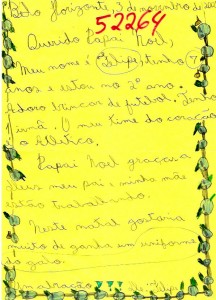 Belo Horizonte, 3 de novembro de
52264
Querido Papai Noel,
Meu nome é Felipe, tenho 7
anos e estou no 2º ano.
Adoro brincar de futebol. Tenho
irmã. O meu time do coração
o Atlético.
Papai Noel graças a
Deus meu pai e minha mãe
estão trabalhando.
Neste natal gostaria
muito de ganhar um uniforme
do galo.